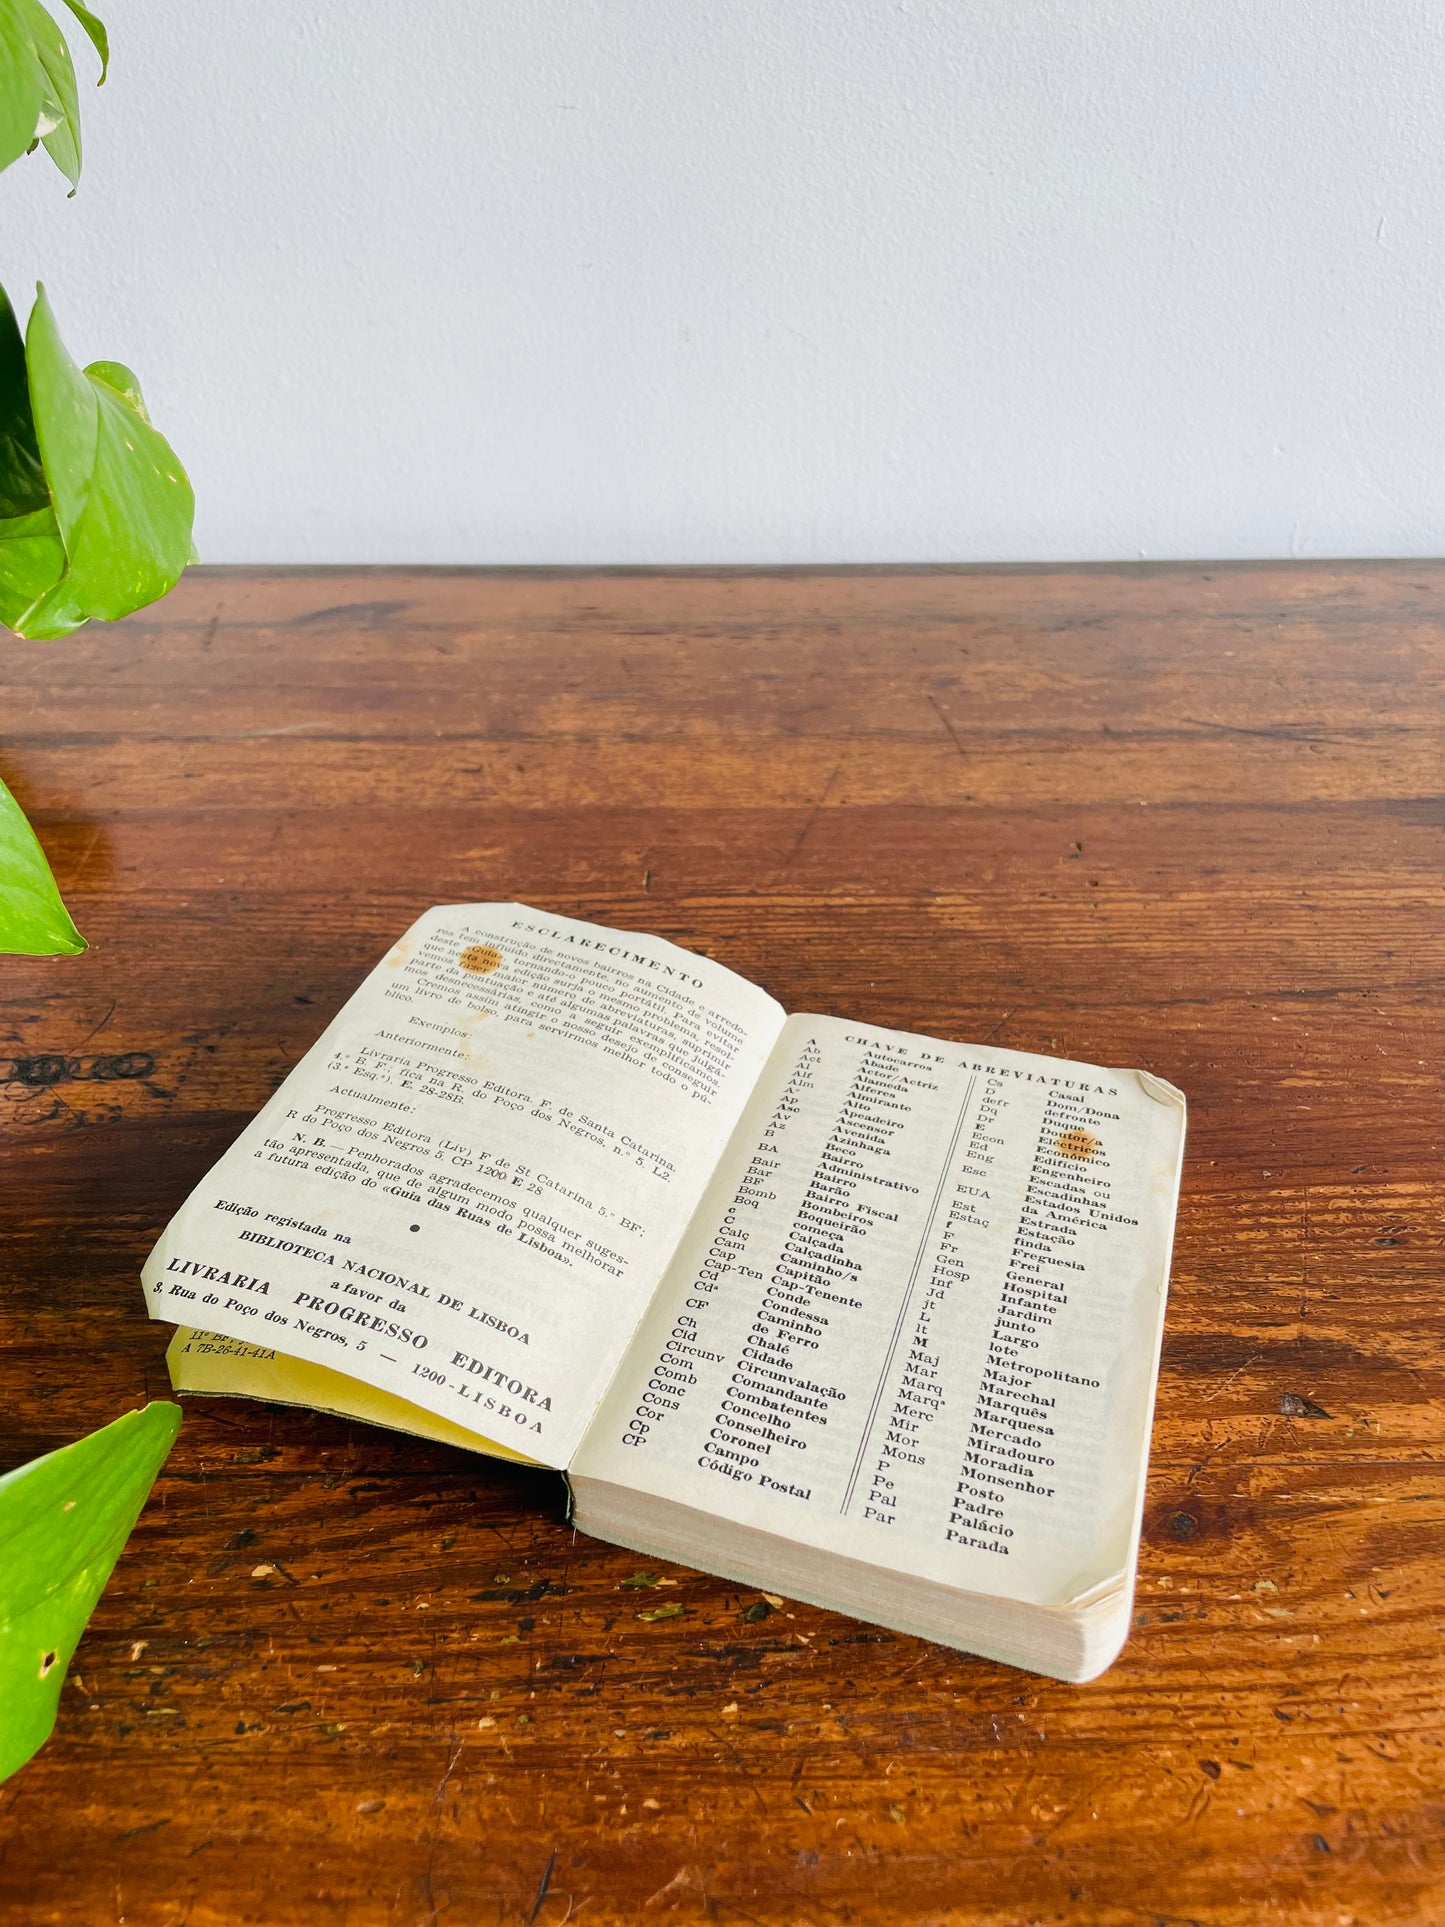 ESCLARECIMENTO
A construção de novos bairros na Cidade e arredo-
res tem influído directamente, no aumento de volume
deste «Guia», tornando-o pouco portátil. Para evitar
que nesta nova edição surja o mesmo problema, resol-
vemos fazer maior número de abreviaturas, suprimir
parte da pontuação e até algumas palavras que julgá-
mos desnecessárias, como a seguir exemplificamos.
Cremos assim atingir o nosso desejo de conseguir
um livro de bolso, para servirmos melhor todo o pú-
blico.
Exemplos:
Anteriormente:
Livraria Progresso Editora. F. de Santa Catarina.
4.º B. F.; fica na R. do Poço dos Negros, n.º 5, L2.
(3.ª Esq.ª). E. 28-28B.
Actualmente:
Progresso Editora (Liv) F de St Catarina 5.º BF;
R do Poço dos Negros 5. CP 1200 E 28
N. B. — Penhorados agradecemos qualquer suges-
tão apresentada, que de algum modo possa melhorar
a futura edição do «Guia das Ruas de Lisboa».
Edição registada na
BIBLIOTECA NACIONAL DE LISBOA
a favor da
LIVRARIA PROGRESSO EDITORA
3, Rua do Poço dos Negros, 5 — 1200 - LISBOA
11º BF;
A 7B-26-41-41A
CHAVE DE ABREVIATURAS
A Autocarros
Ab Abade
Act Actor/Actriz
Al Alameda
Alf Alferes
Alm Almirante
Aº Alto
Ap Apeadeiro
Asc Ascensor
Av Avenida
Az Azinhaga
B Beco
BA Bairro
Administrativo
Bair Bairro
Bar Barão
BF Bairro Fiscal
Bomb Bombeiros
Boq Boqueirão
c começa
C Calçada
Calç Calçadinha
Cam Caminho/s
Cap Capitão
Cap-Ten Cap-Tenente
Cd Conde
Cdª Condessa
CF Caminho
de Ferro
Ch Chalé
Cid Cidade
Circunv Circunvalação
Com Comandante
Comb Combatentes
Conc Concelho
Cons Conselheiro
Cor Coronel
Cp Campo
CP Código Postal
Cs Casal
D Dom/Dona
defr defronte
Dq Duque
Dr Doutor/a
E Eléctricos
Econ Económico
Ed Edifício
Eng Engenheiro
Esc Escadas ou
Escadinhas
EUA Estados Unidos
da América
Est Estrada
Estaç Estação
f finda
F Freguesia
Fr Frei
Gen General
Hosp Hospital
Inf Infante
Jd Jardim
jt junto
L Largo
lt lote
M Metropolitano
Maj Major
Mar Marechal
Marq Marquês
Marqª Marquesa
Merc Mercado
Mir Miradouro
Mor Moradia
Mons Monsenhor
P Posto
Pe Padre
Pal Palácio
Par Parada